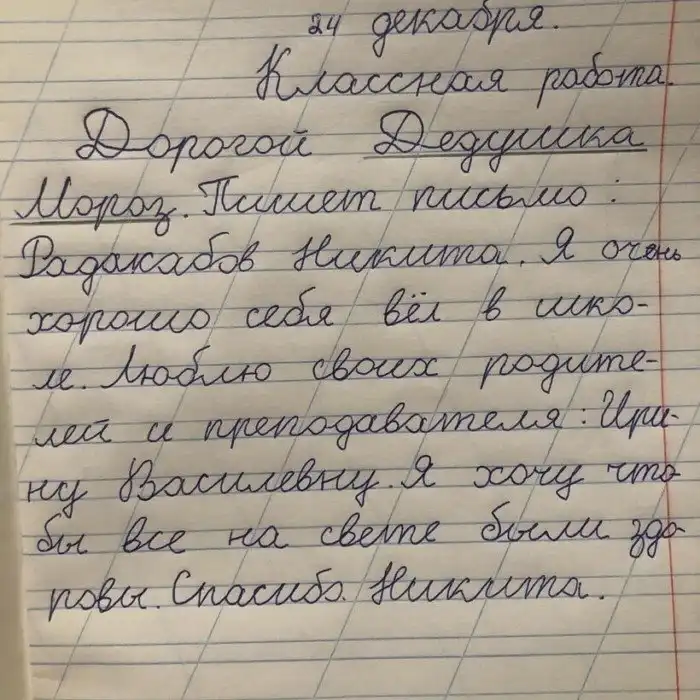 24 декабря.
Классная работа.
Дорогой Дедушка
Мороз. Пишет письмо:
Радакабов Никита. Я очень
хорошо себя вёл в шко-
ле. Люблю своих родите-
лей и преподавателя: Ири-
ну Василевну. Я хочу что
бы все на свете были здо-
ровы. Спасибо. Никита.